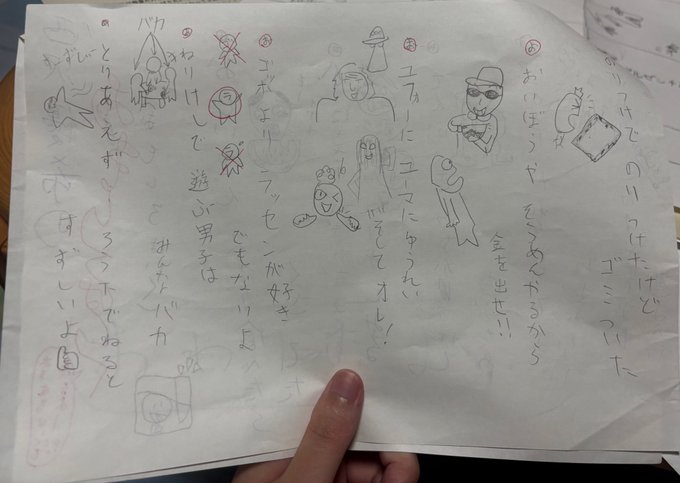 のりつけで のりつけたけど
ゴミついた
お
おい ぼうや そうめんやるから
金を出せ!!
お
ユフォーにユーマにゆうれい
そしてオレ!
お
ゴボよりラッセンが好き
でもないよ
ラ
ラ
お
ねりけしで 遊ぶ男子は
みんなバカ
バカ
の
とりあえず ろうかでねると
すずしいよ